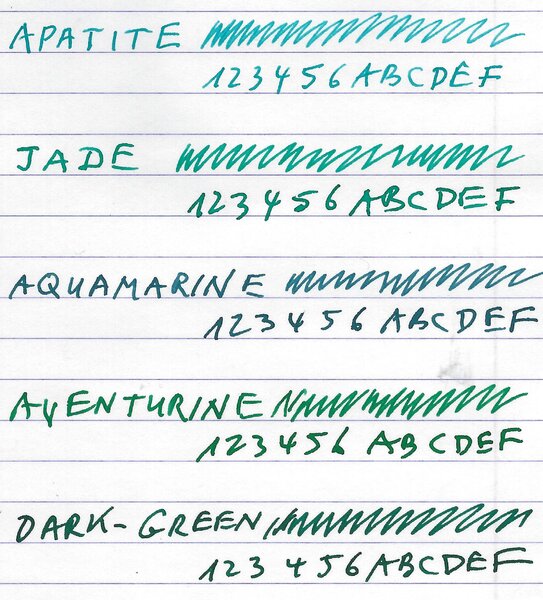 APATITE
123456 ABCDEF
JADE
123456 ABCDEF
AQUAMARINE
123456 ABCDEF
AVENTURINE
123456 ABCDEF
DARK-GREEN
123456 ABCDEF